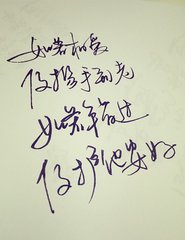 如若相爱
便携手到老
如若错过
便护他安好